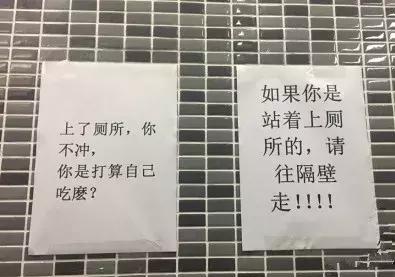 上了厕所，你
不冲，
你是打算自己
吃麽？
如果你是
站着上厕
所的，请
往隔壁
走！！！！